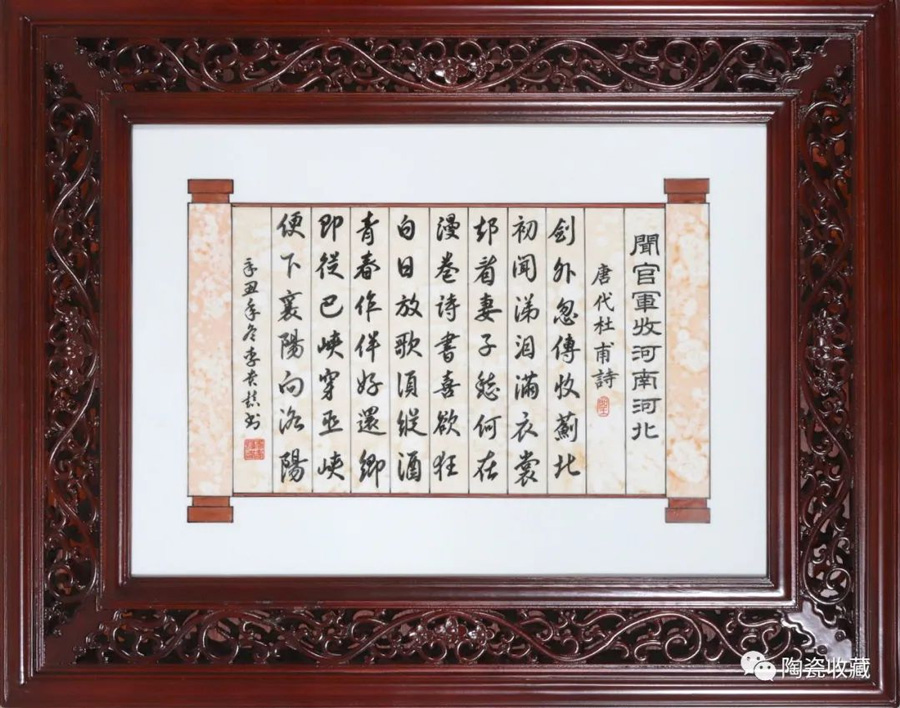 聞官軍收河南河北
唐代杜甫詩
剑外忽傳收薊北
初闻涕泪滿衣裳
却看妻子愁何在
漫卷诗書喜欲狂
白日放歌須縱酒
青春作伴好還鄉
即從巴峽穿巫峽
便下襄陽向洛陽
辛丑年冬李书
陶瓷收藏